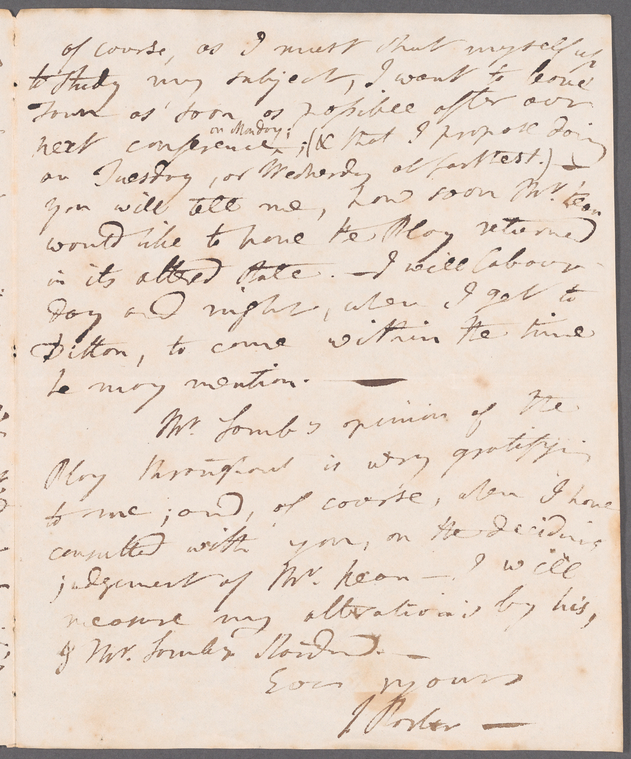 of course, as I must shut myself up
to study my subject, I want to leave
Town as soon as possible after our
next conference on Monday; (& that I propose doing
on Tuesday, or Wednesday at farthest.) —
you will tell me, how soon Mr. Kean
would like to have the Play returned
in its altered state. — I will labour
day and night, when I get to
Ditton, to come within the time
he may mention. —
Mr. Lamb's opinion of the
Play throughout is very gratifying
to me; and, of course, when I have
consulted with you, on the deciding
judgement of Mr. Kean — I will
measure my alterations by his,
& Mr. Lamb's Standard. —
Ever yours
J Porter —